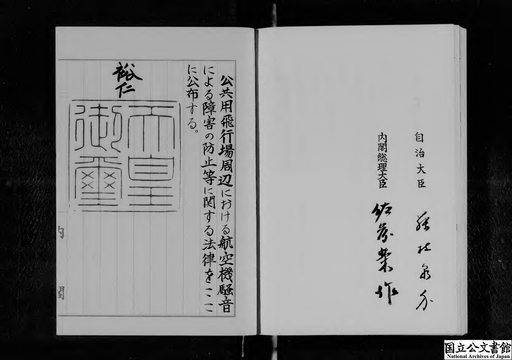 自治大臣 藤枝泉介
内閣総理大臣 佐藤榮作
公共用飛行場周辺における航空機騒音
による障害の防止等に関する法律をここ
に公布する。
裕仁
天皇
御璽
内閣
国立公文書館
National Archives of Japan